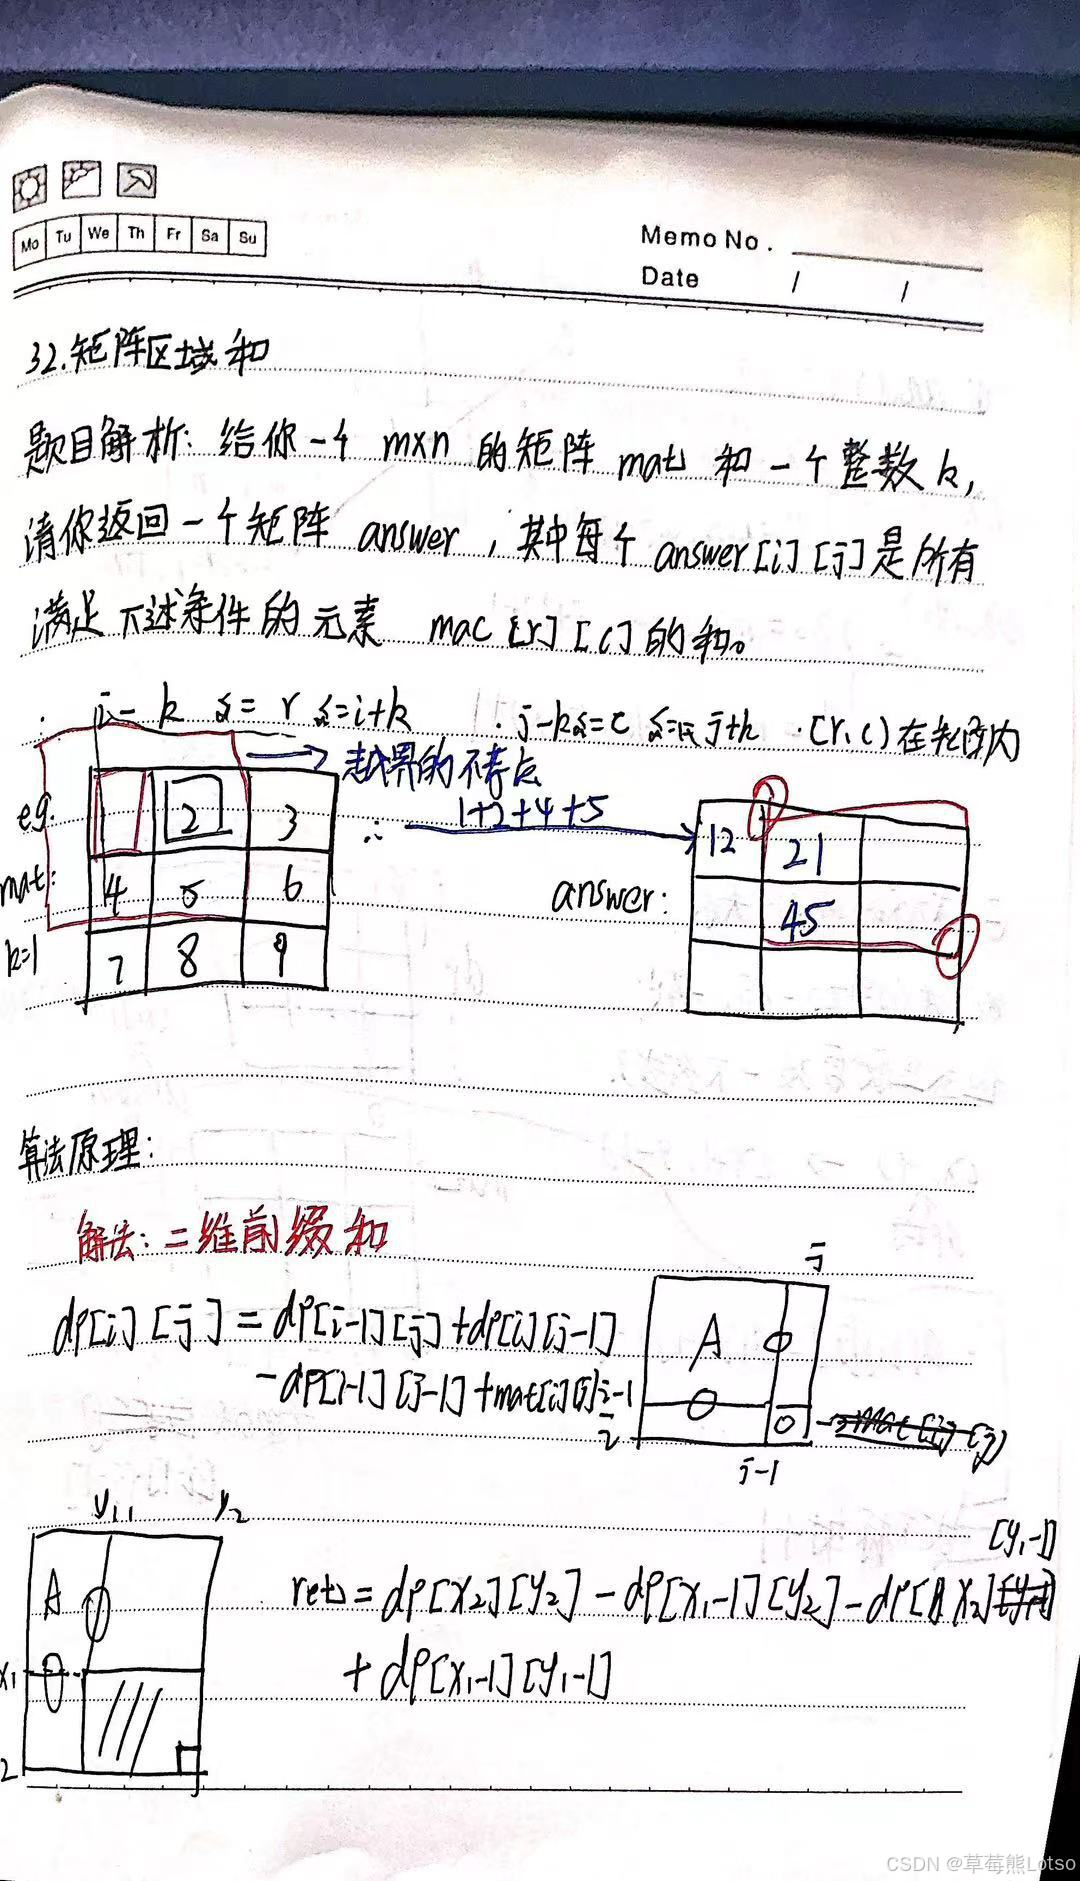 Mo Tu We Th Fr Sa Su
Memo No.
Date / /
32.矩阵区域和
题目解析: 给你一个 m×n 的矩阵 mat 和一个整数 k,
请你返回一个矩阵 answer , 其中每个 answer[i][j]是所有
满足下述条件的元素 mac [r][c]的和。
· i-k <= r <= i+k · j-k <= c <= j+k ·(r,c)在矩阵内
越界的不考虑
eg. 1 2 3
∴ 1+2+4+5
12 21
mat: 4 5 6
answer:
45
k=1 7 8 9
算法原理:
解法: 二维前缀和
j
dp[i][j] = dp[i-1][j]+dp[i][j-1]
A
-dp[i-1][j-1]+mat[i][j]
i-1
i
j-1
y1 y2
[y1-1]
A
ret = dp[x2][y2] - dp[x1-1][y2] - dp[x2]
x1
+ dp[x1-1][y1-1]
2
CSDN @草莓熊Lotso